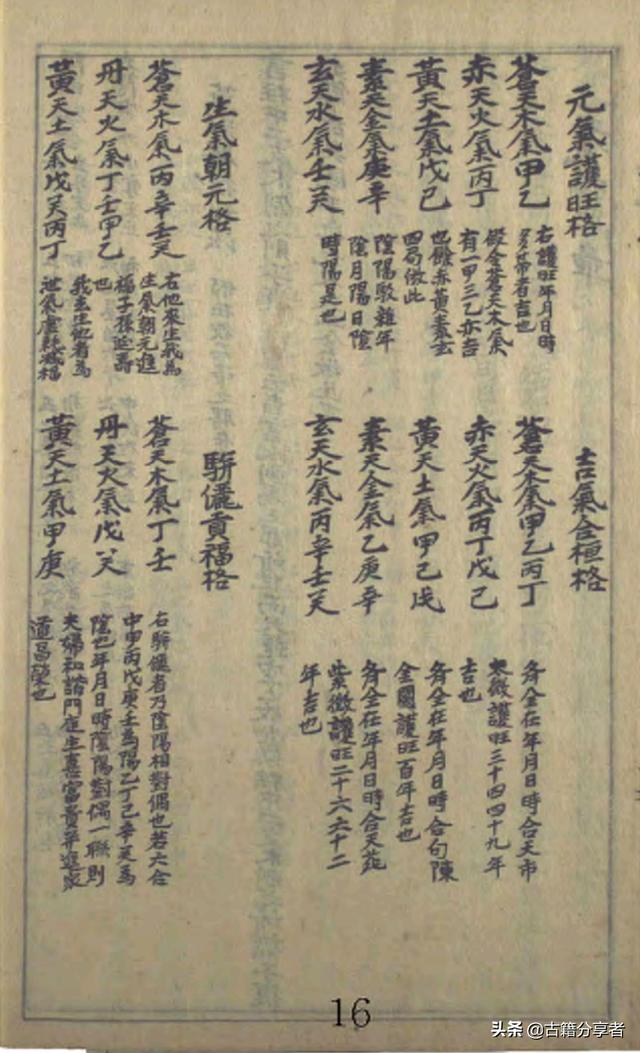 元氣護旺格
蒼天木氣甲乙
赤天火氣丙丁
黃天土氣戊己
素天金氣庚辛
玄天水氣壬癸
右護旺年月日時
多帶者吉也
假令蒼天木氣
有一甲三乙亦吉
也餘赤黃素玄
四局倣此
陰陽駁雜年
陰月陽日陰
時陽是也
生氣朝元格
蒼天木氣丙辛壬癸
丹天火氣丁壬甲乙
黃天土氣戊癸丙丁
右他來生我為
生氣朝元進
福子孫延壽
也
我去生他者為
泄氣虛耗減福
吉氣合桓格
蒼天木氣甲乙丙丁
赤天火氣丙丁戊己
黃天土氣甲己戊
素天金氣乙庚辛
玄天水氣丙辛壬癸
身全在年月日時合天市
太微護旺三十四四十九年
吉也
身全在年月日時合句陳
全國護旺百年吉也
身全在年月日時合天苑
紫微護旺二十六六十二
年吉也
駢儷貢福格
蒼天木氣丁壬
丹天火氣戊癸
黃天土氣甲庚
右駢儷者乃陰陽相對偶也若六合
中甲丙戊庚壬為陽乙丁己辛癸為
陰也年月日時陰陽對偶一聯則
夫婦和諧門庭生喜富貴榮進家
道昌榮也
16
头条 @古籍分享者